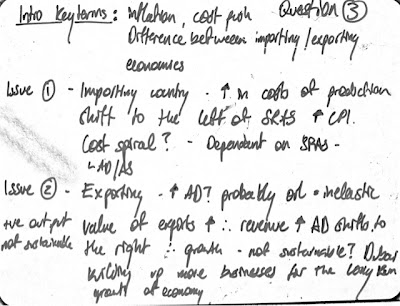 Intro Key terms : inflation, cost push Question ③
Difference between importing/exporting
economies
Issue ① - Importing country - ↑ in costs of production
shift to the left of SRAS ↑ CPI.
Cost spiral? - Dependant on SRAS -
↳ AD/AS
Issue ② - Exporting - ↑ AD? probably oil • inelastic
+ve output value of exports ↑ ∴ revenue ↑ AD shifts to
not sustainable the right ∴ growth - not sustainable? Dubai
building up more businesses for the long term
growth of economy